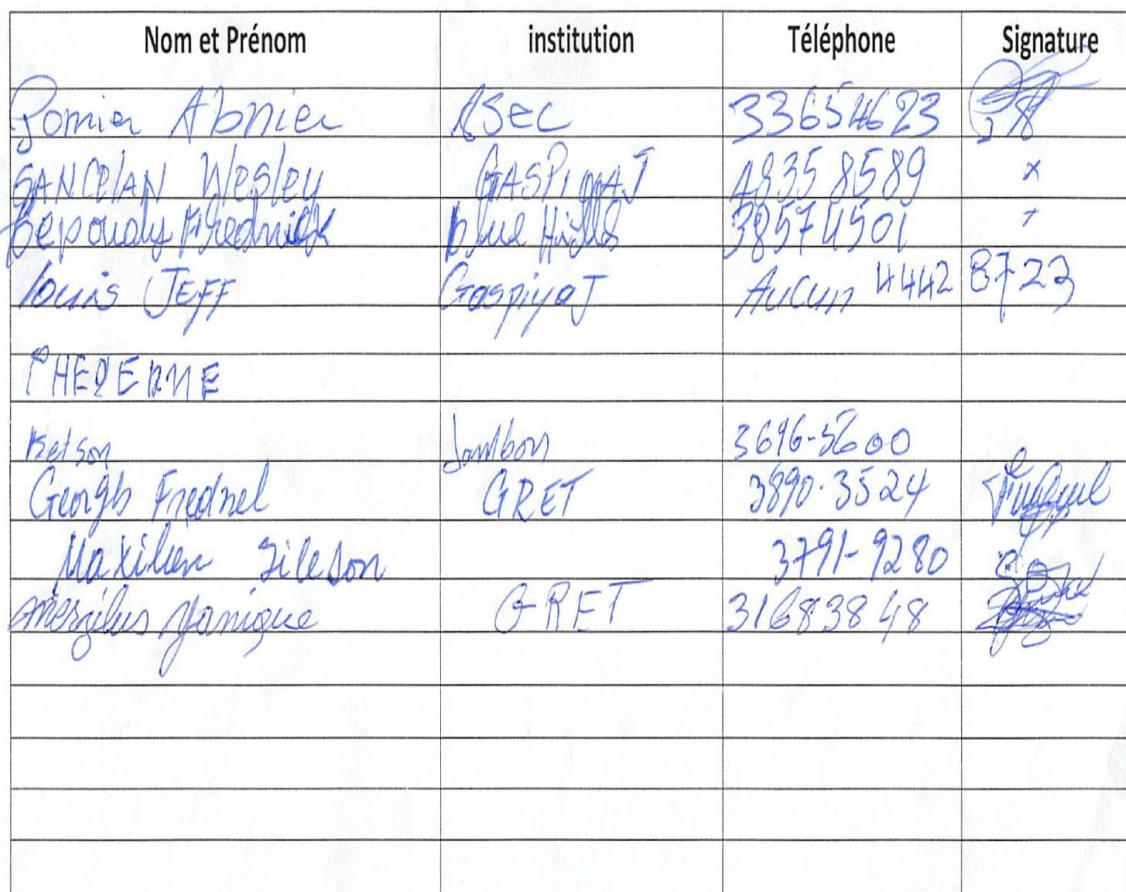 Nom et Prénom institution Téléphone Signature
Pomier Abnier ASEC 33654623
SANCELAN Wesley GASPIYAJ 4835 8589 x
Fredrick blue Hills 38574501 x
louis JEFF Gaspiyaj Aucun 4442 8723
Ketson Jambon 3696-5600
Georgb Frednel GRET 3890-3524
Maxilien Sileson 3791-9280
Merzilus Yanique GRET 31683848